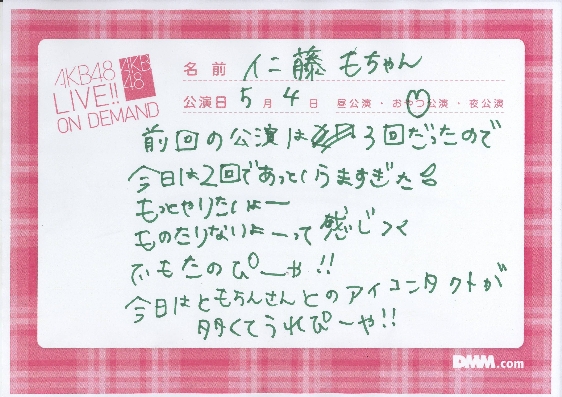 AKB48
LIVE!!
ON DEMAND
AKB
48
名前 仁藤もちゃん
公演日 5月4日 昼公演・おやつ公演・夜公演
前回の公演は 3回だったので
今日は2回であっというますぎた
もっとやりたいよー
ものたりないよーって感じっく
でもたのぴーや!!
今日はともちんさんとのアイコンタクトが
多くてうれぴーや!!
DMM.com